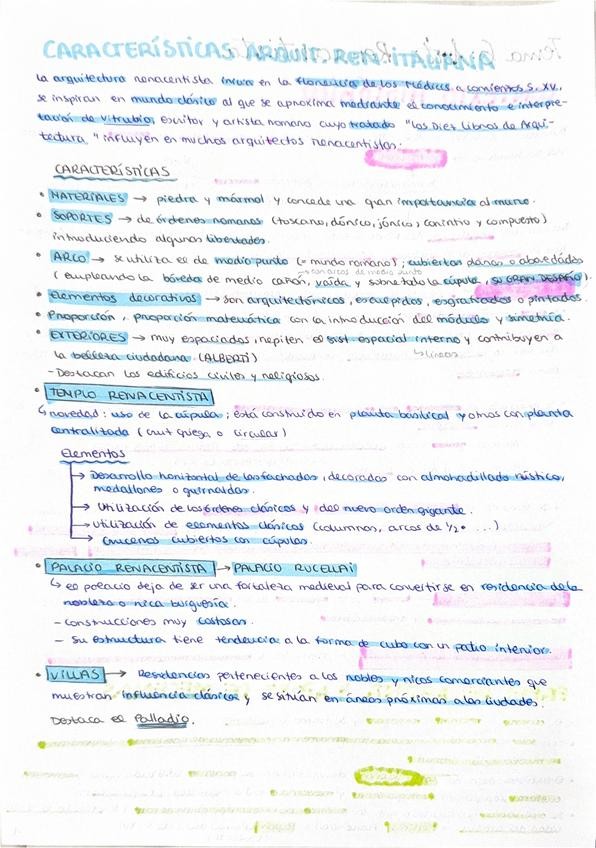 CARACTERÍSTICAS ARQUIT. REN ITALIANA
La arquitectura renacentista inicia en la Florencia de los Médicis a comienzos S. XV,
se inspiran en mundo clásico al que se aproxima mediante el conocimiento e interpre-
tación de Vitrubio, escritor y artista romano cuyo tratado "Los Diez Libros de Arqui-
tectura" influyen en muchos arquitectos renacentistas.
CARACTERÍSTICAS
• MATERIALES → piedra y mármol y concede una gran importancia al muro.
• SOPORTES → de órdenes romanos (toscano, dórico, jónico, corintio y compuesto)
introduciendo algunas libertades.
• ARCO → se utiliza el de medio punto (= mundo romano); cubiertas planas o abovedadas
→ con arcos de medio punto
(empleando la bóveda de medio cañón, vaída y sobretodo la cúpula, SU GRAN DESAFÍO).
• Elementos decorativos → son arquitectónicos, esculpidos, esgrafiados o pintados.
• Proporción, proporción matemática con la introducción del módulo y simetría.
• EXTERIORES → muy espaciados, repiten el sist. espacial interno y contribuyen a
↳ líneas
la belleza ciudadana. (ALBERTI)
- Destacan los edificios civiles y religiosos.
• TEMPLO RENACENTISTA
↳ novedad: uso de la cúpula; está construido en planta basilical y otros con planta
centralizada (cruz griega o circular)
Elementos
→ Desarrollo horizontal de las fachadas, decoradas con almohadillado rústico,
medallones o guirnaldas.
→ Utilización de los órdenes clásicos y del nuevo orden gigante.
→ Utilización de elementos clásicos (columnas, arcos de 1/2• ...)
→ Cruceros cubiertos con cúpulas.
• PALACIO RENACENTISTA → PALACIO RUCELLAI
↳ el palacio deja de ser una fortaleza medieval para convertirse en residencia de la
nobleza o rica burguería.
- construcciones muy costosas.
- Su estructura tiene tendencia a la forma de cubo con un patio interior.
• VILLAS → Residencias pertenecientes a los nobles y ricos comerciantes que
muestran influencia clásica y se sitúan en áreas próximas a las ciudades.
Destaca el Palladio.